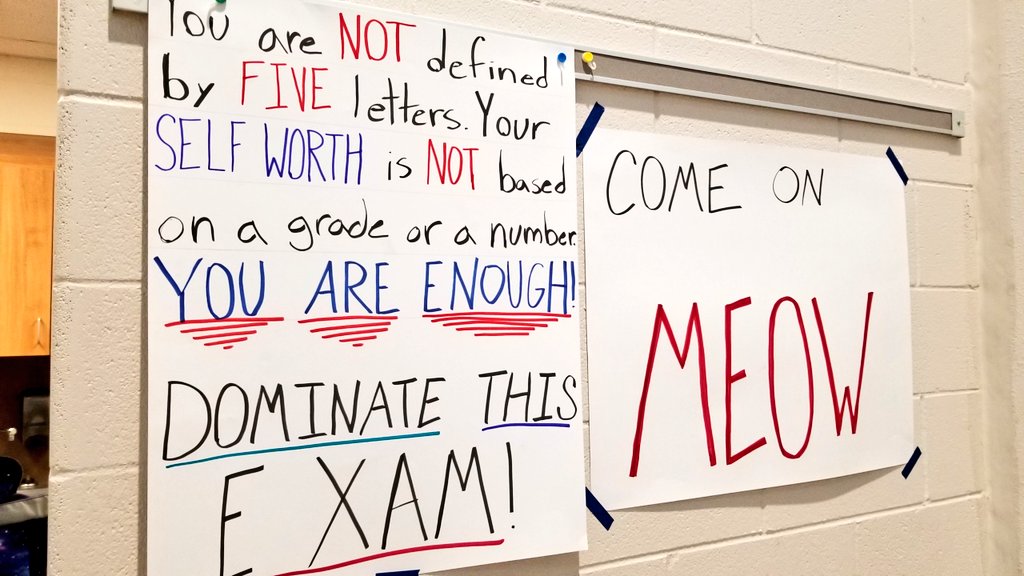 You are NOT defined
by FIVE letters. Your
SELF WORTH is NOT based
on a grade or a number.
YOU ARE ENOUGH!
DOMINATE THIS
EXAM!
COME ON
MEOW